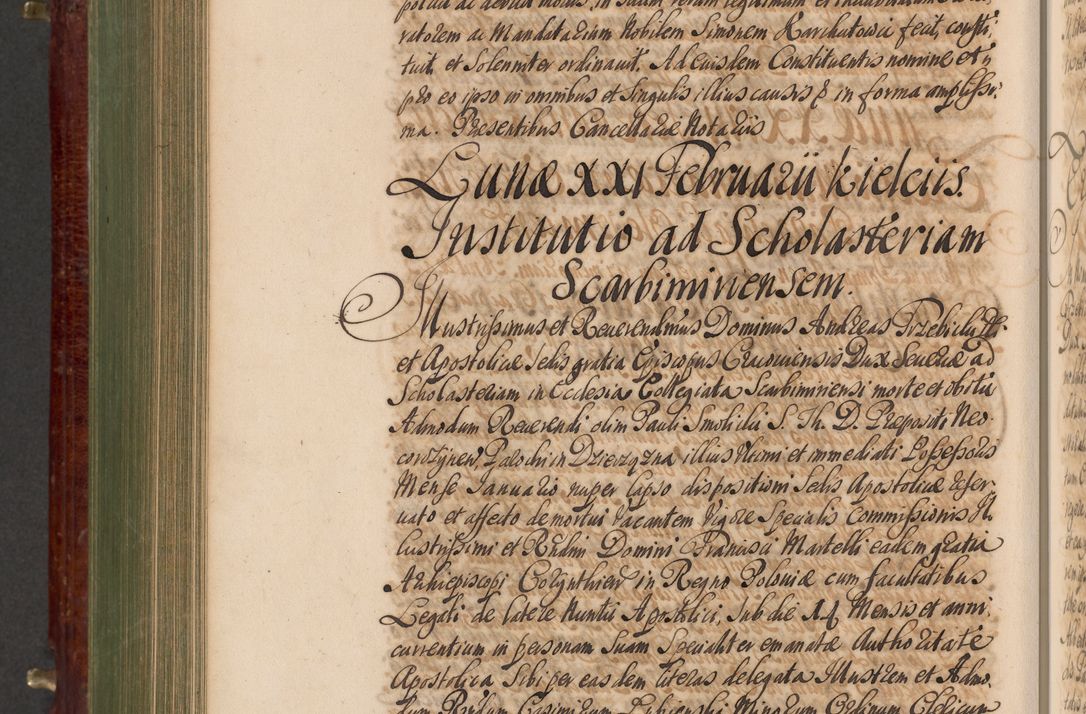 potua ac debita modis, in suam veram legitimum et indubitatum
ratorem ac Mandatarium Nobilem Simonem Karchutowic fecit, consti,
tuit, et Solenniter ordinauit. Ad eiusdem Constituentis nomine et
pro eo ipso in omnibus et singulis illius causis & in forma amplissi,
ma. Presentibus Cancellariæ Notariis
Lunæ XXI Februarii Kielciis.
Institutio ad Scholasteriam
Scarbimiriensem.
Illustrissimus et Reuerendmus Dominus Andreas Trzebicki
et Apostolicæ Sedis gratia Episcopus Cracouiensis Dux Seueriæ ad
Scholasteriam in Ecclesia Collegiata Scarbimiriensi morte et obitu
Admodum Reuerendi olim Pauli Smolicki S. Th. D. Præpositi Neo-
corczynen Parochi in Dzierzązna illius Ultimi et immediati Possessoris
Mense Januario nuper lapso dispositioni Sedis Apostolicæ reser
uato et affecto demortui vacantem Vigore Specialis Commissionis Il
lustrissimi et Rndmi Domini Francisci Martelli eadem gratia
Archiepiscopi Corynthien in Regno Poloniæ cum facultatibus
Legati de latere Nuntii Apostolici, sub die 14 Mensis et anni
currentium in personam Suam Specialiter emanatæ Authoritate
Apostolica Sibi per easdem literas delegata Illustrem et Admo,
dum Rndum Casimirum Minorum Ordinum Clericum